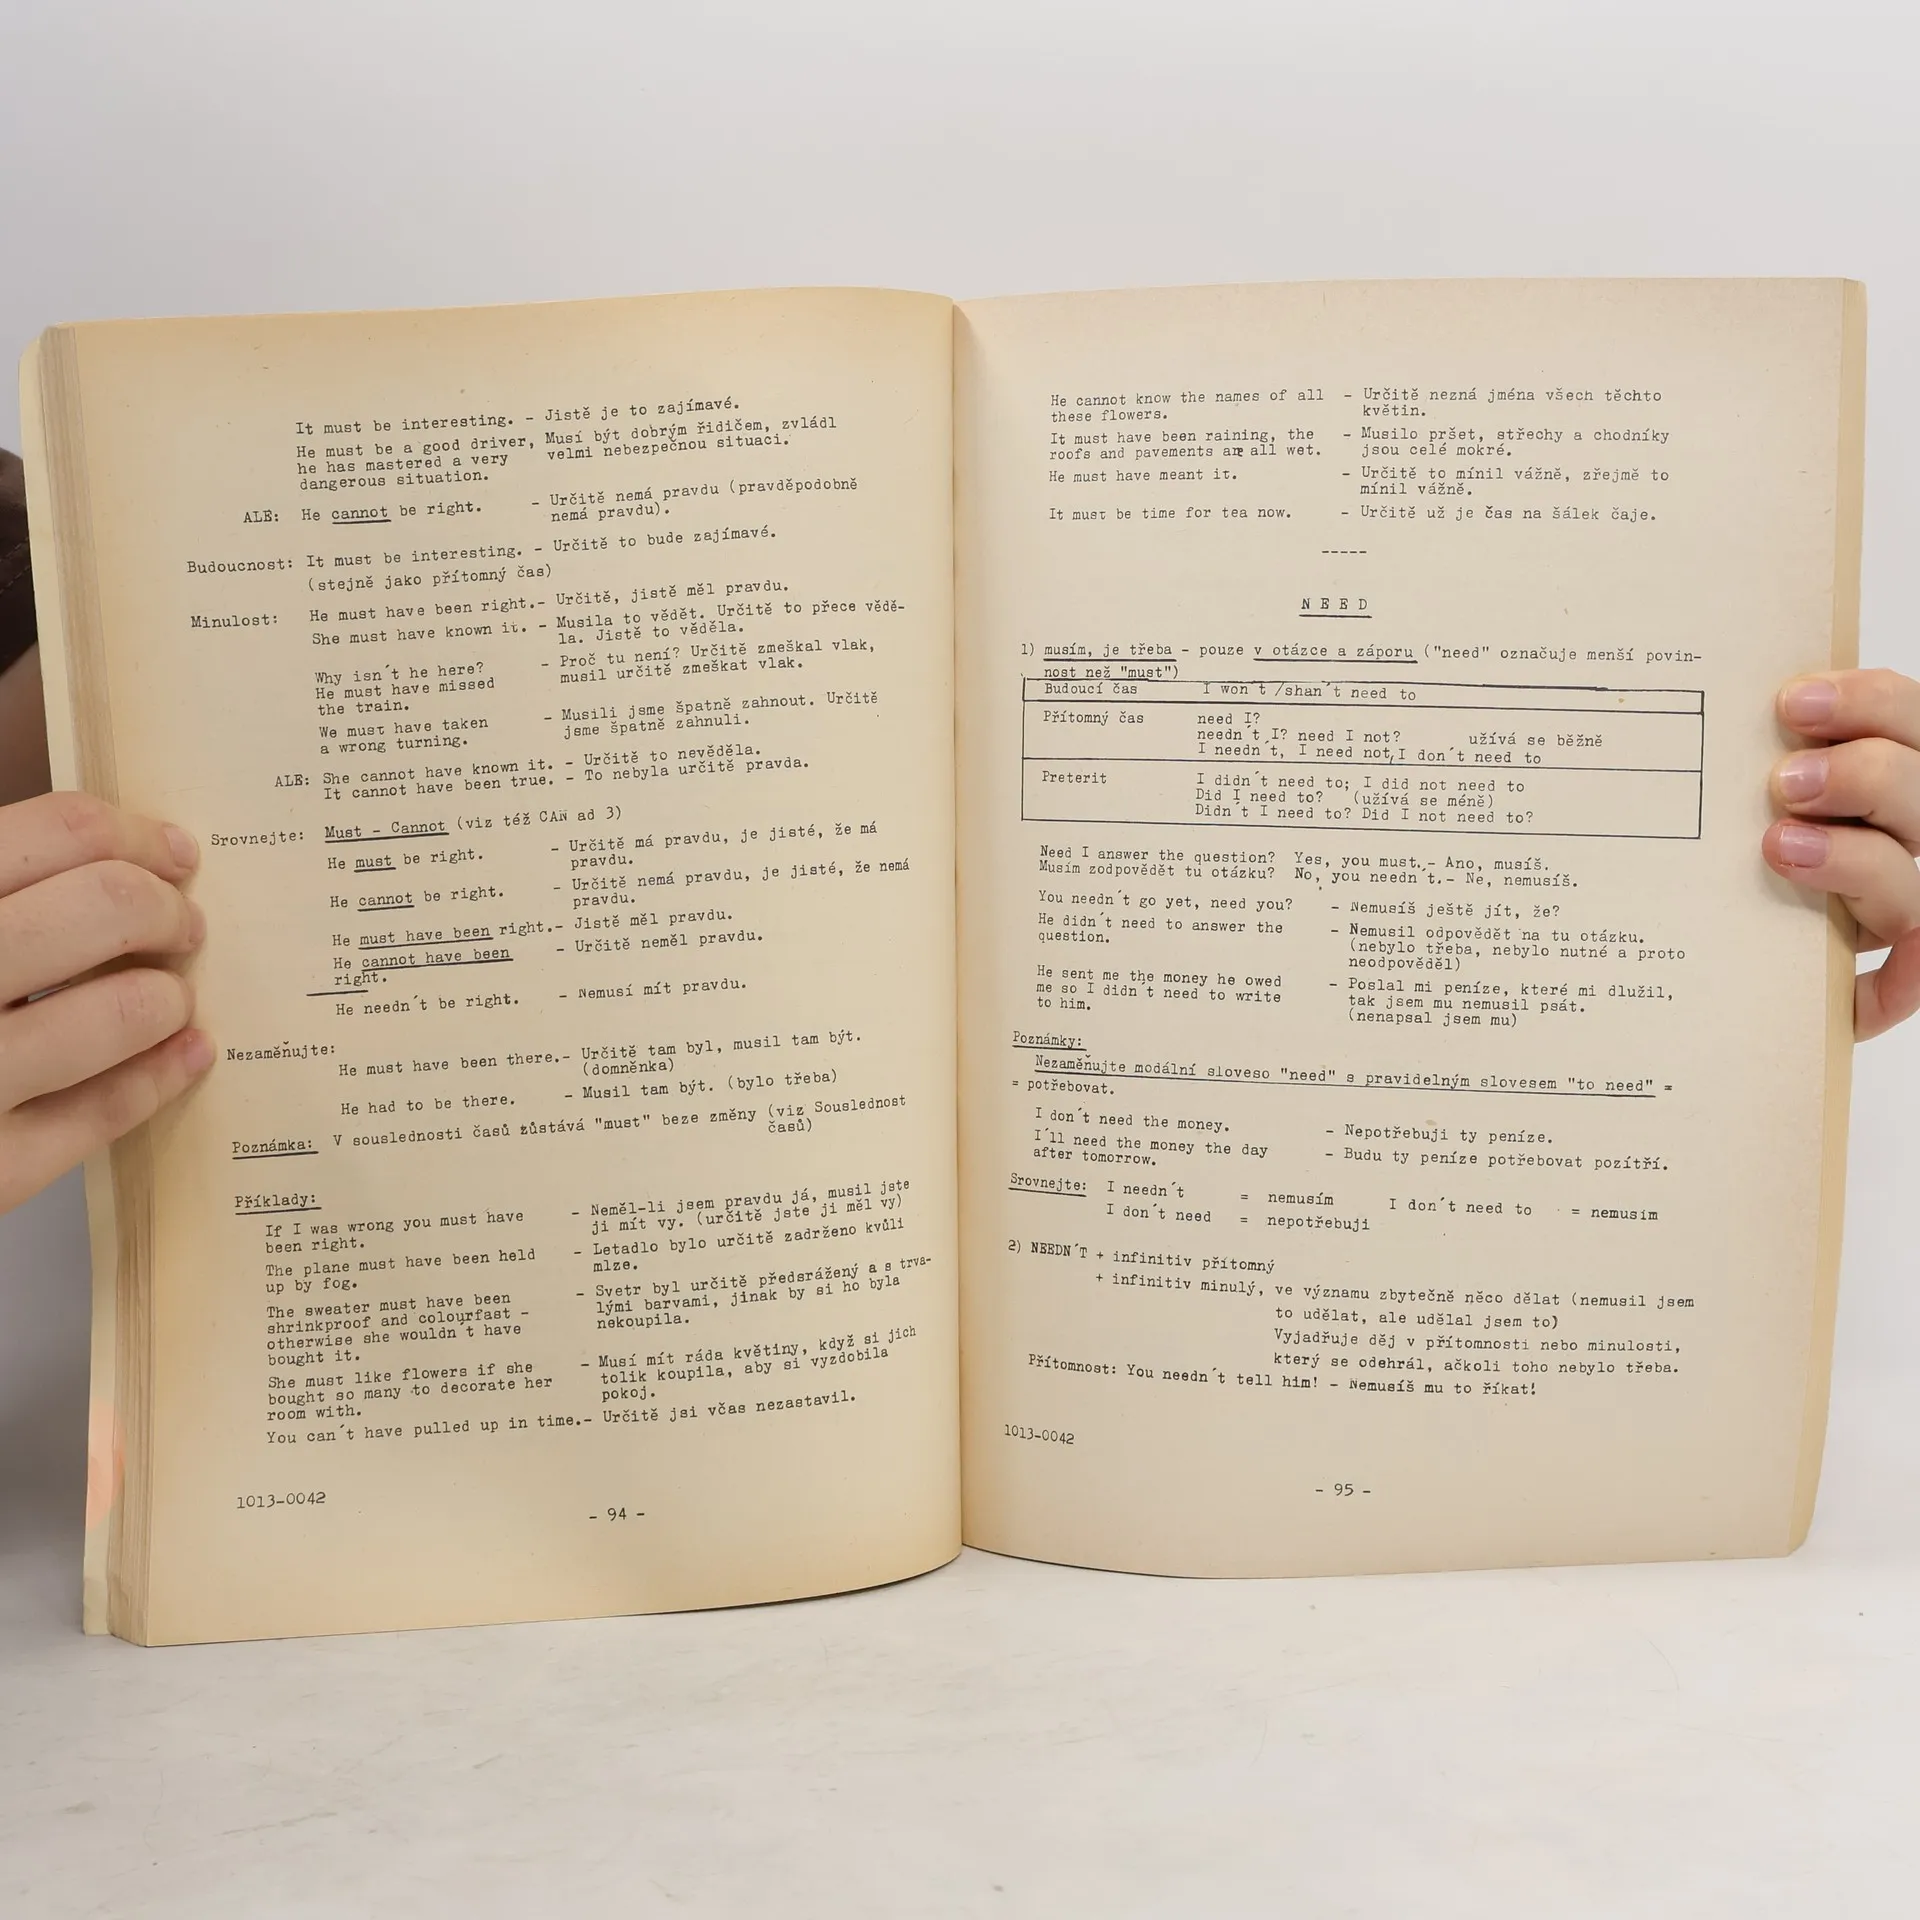 It must be interesting. - Jistě je to zajímavé.
He must be a good driver, Musí být dobrým řidičem, zvládl
he has mastered a very velmi nebezpečnou situaci.
dangerous situation.
ALE: He cannot be right. - Určitě nemá pravdu (pravděpodobně
nemá pravdu).
Budoucnost: It must be interesting. - Určitě to bude zajímavé.
(stejně jako přítomný čas)
Minulost: He must have been right.- Určitě, jistě měl pravdu.
She must have known it. - Musila to vědět. Určitě to přece vědě-
la. Jistě to věděla.
Why isn´t he here? - Proč tu není? Určitě zmeškal vlak,
He must have missed musil určitě zmeškat vlak.
the train.
We must have taken - Musili jsme špatně zahnout. Určitě
a wrong turning. jsme špatně zahnuli.
ALE: She cannot have known it. - Určitě to nevěděla.
It cannot have been true. - To nebyla určitě pravda.
Srovnejte: Must - Cannot (viz též CAN ad 3)
He must be right. - Určitě má pravdu, je jisté, že má
pravdu.
He cannot be right. - Určitě nemá pravdu, je jisté, že nemá
pravdu.
He must have been right.- Jistě měl pravdu.
He cannot have been - Určitě neměl pravdu.
right.
He needn´t be right. - Nemusí mít pravdu.
Nezaměňujte:
He must have been there.- Určitě tam byl, musil tam být.
(domněnka)
He had to be there. - Musil tam být. (bylo třeba)
Poznámka: V souslednosti časů zůstává "must" beze změny (viz Souslednost
časů)
Příklady:
If I was wrong you must have - Neměl-li jsem pravdu já, musil jste
been right. ji mít vy. (určitě jste ji měl vy)
The plane must have been held - Letadlo bylo určitě zadrženo kvůli
up by fog. mlze.
The sweater must have been - Svetr byl určitě předsrážený a s trva-
shrinkproof and colourfast - lými barvami, jinak by si ho byla
otherwise she wouldn´t have nekoupila.
bought it.
She must like flowers if she - Musí mít ráda květiny, když si jich
bought so many to decorate her tolik koupila, aby si vyzdobila
room with. pokoj.
You can´t have pulled up in time.- Určitě jsi včas nezastavil.
1013-0042
- 94 -
He cannot know the names of all - Určitě nezná jména všech těchto
these flowers. květin.
It must have been raining, the - Musilo pršet, střechy a chodníky
roofs and pavements are all wet. jsou celé mokré.
He must have meant it. - Určitě to mínil vážně, zřejmě to
mínil vážně.
It must be time for tea now. - Určitě už je čas na šálek čaje.
-----
N E E D
1) musím, je třeba - pouze v otázce a záporu ("need" označuje menší povin-
nost než "must")
Budoucí čas I won´t /shan´t need to
Přítomný čas need I?
needn´t I? need I not? užívá se běžně
I needn´t, I need not, I don´t need to
Preterit I didn´t need to; I did not need to
Did I need to? (užívá se méně)
Didn´t I need to? Did I not need to?
Need I answer the question? Yes, you must.- Ano, musíš.
Musím zodpovědět tu otázku? No, you needn´t.- Ne, nemusíš.
You needn´t go yet, need you? - Nemusíš ještě jít, že?
He didn´t need to answer the - Nemusil odpovědět na tu otázku.
question. (nebylo třeba, nebylo nutné a proto
neodpověděl)
He sent me the money he owed - Poslal mi peníze, které mi dlužil,
me so I didn´t need to write tak jsem mu nemusil psát.
to him. (nenapsal jsem mu)
Poznámky:
Nezaměňujte modální sloveso "need" s pravidelným slovesem "to need" =
= potřebovat.
I don´t need the money. - Nepotřebuji ty peníze.
I´ll need the money the day - Budu ty peníze potřebovat pozítří.
after tomorrow.
Srovnejte: I needn´t = nemusím I don´t need to = nemusím
I don´t need = nepotřebuji
2) NEEDN´T + infinitiv přítomný
+ infinitiv minulý, ve významu zbytečně něco dělat (nemusil jsem
to udělat, ale udělal jsem to)
Vyjadřuje děj v přítomnosti nebo minulosti,
který se odehrál, ačkoli toho nebylo třeba.
Přítomnost: You needn´t tell him! - Nemusíš mu to říkat!
1013-0042
- 95 -